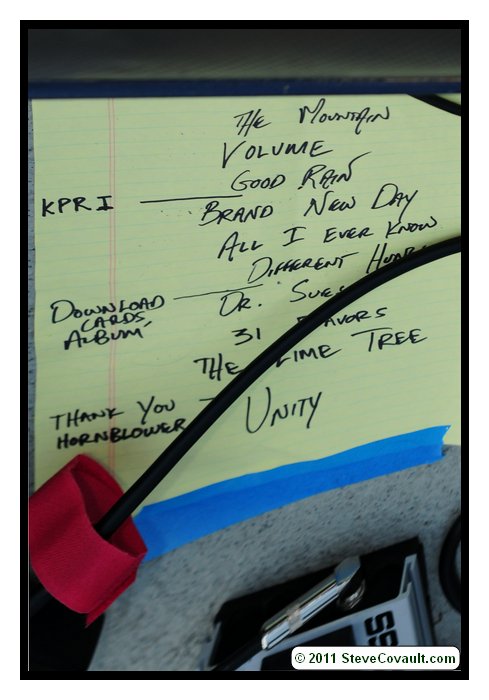 THE MOUNTAIN
VOLUME
GOOD RAIN
KPRI BRAND NEW DAY
ALL I EVER KNOW
DIFFERENT
DOWNLOAD CARDS ALBUM
DR.
31
THE LIME TREE
THANK YOU HORNBLOWER
UNITY
© 2011 SteveCovault.com